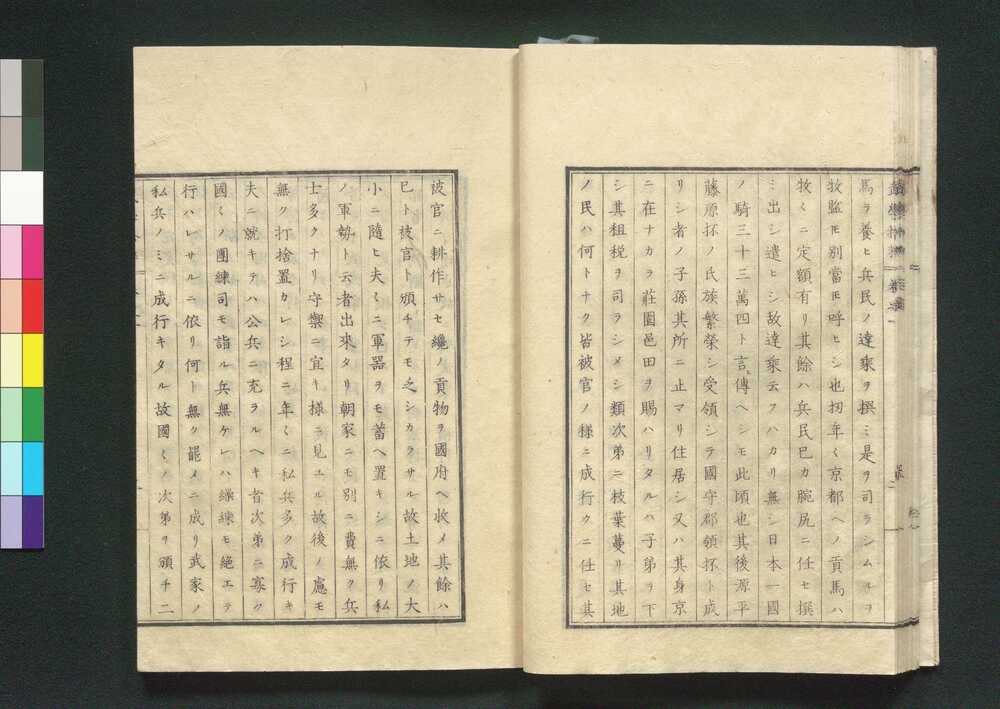 馬ヲ養ヒ兵民ノ達乗ヲ撰ミ是ヲ司ラシムルヲ
牧監モ別當モ呼ヒシ也扨年〻京都ヘノ貢馬ハ
牧〻ニ定額有リ其餘ハ兵民巳カ腕尻ニ任セ撰
ミ出シ遣ヒシ故達乗云フハカリ無シ日本一國
ノ騎三十三萬四ト言傳ヘシモ此頃也其後源平
藤原抔ノ氏族繁榮シ受領シテ國守郡領抔ト成
リシ者ノ子孫其所ニ止マリ住居シ又ハ其身京
ニ在ナカラ莊園邑田ヲ賜ハリタルハ子弟ヲ下
シ其租税ヲ司ラシメシ類次第ニ枝葉蔓リ其地
ノ民ハ何トナク皆被官ノ様ニ成行クニ任セ其
被官ニ耕作サセ纔ノ貢物ヲ國府ヘ收メ其餘ハ
巳ト被官ト頒チテモ乏シカラサル故土地ノ大
小ニ隨ヒ夫〻ニ軍器ヲモ蓄ヘ置キシニ依リ私
ノ軍勢ト云者出來タリ朝家ニモ別ニ費無ク兵
士多クナリ守禦ニ宜キ様ニ見エル故後ノ慮モ
無ク打捨置カレシ程ニ年〻ニ私兵多ク成行キ
夫ニ就キテハ公兵ニ充ラルヘキ者次第ニ寡ク
國〻ノ團練司モ詣ル兵無ケレハ操練モ絶エテ
行ハレサルニ依リ何ト無ク罷メニ成リ武家ノ
私兵ノミニ成行キタル故國〻ノ次第ヲ頒チ二